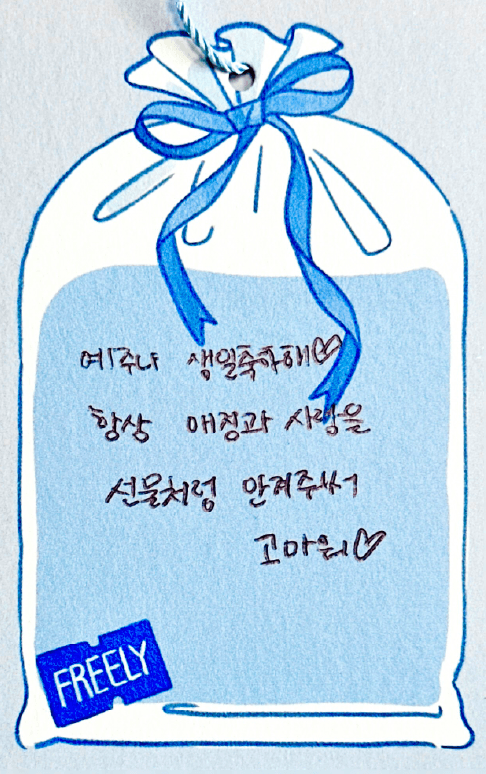 예주나 생일축하해♡
항상 애정과 사랑을
선물처럼 안겨주써
고마워♡
FREELY